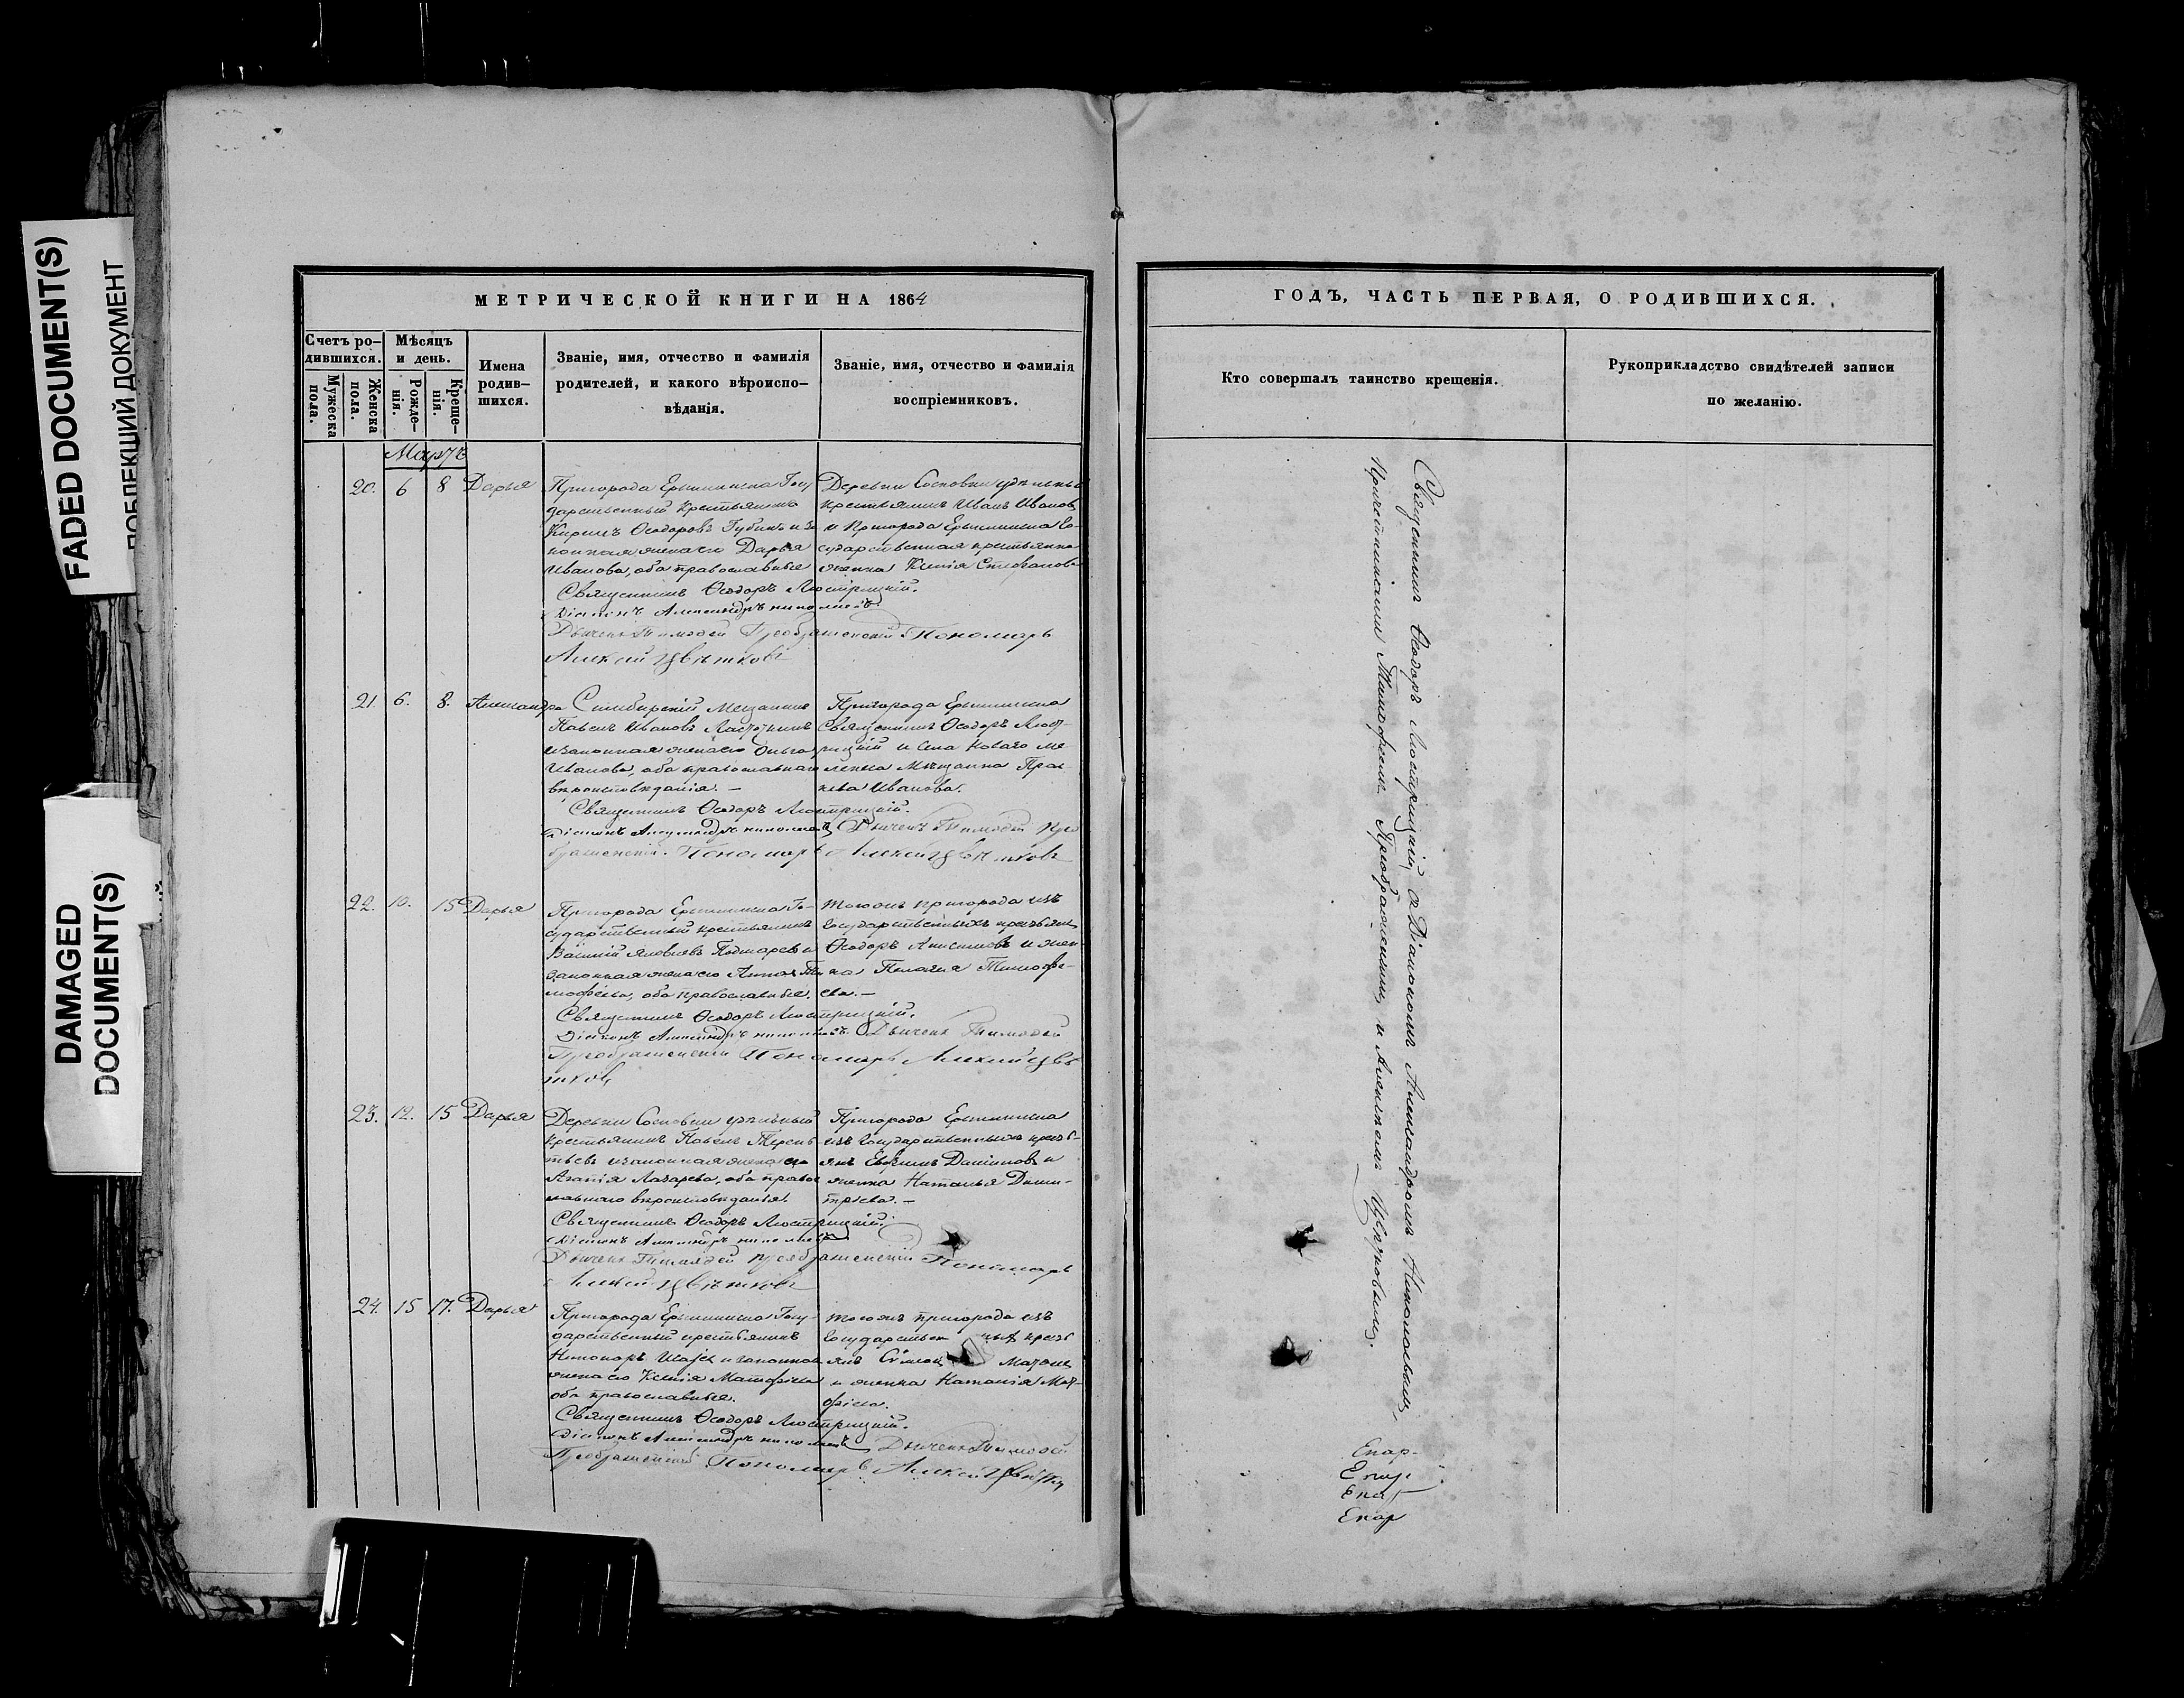 FADED DOCUMENT(S)
DAMAGED
DOCUMENT(S)
МЕТРИЧЕСКОЙ КНИГИ НА 1864
Счетъ ро-
дившихся.
Мужеска
пола.
Женска
пола.
Мѣсяцъ
и день.
Рожде-
нія.
Креще-
нія.
Имена
родив-
шихся.
Званіе, имя, отчество и фамилія
родителей, и какого вѣроиспо-
вѣданія.
Званіе, имя, отчество и фамилія
воспріемниковъ.
Мартъ
20. 6 8 Дарья
Пригорода Ерыклинска Госу-
дарственный крестьянинъ
Кирилъ Ѳеодоровъ Губинъ и за-
конная жена его Дарья
Иванова, оба православные
Деревни Сосновки удѣльный
крестьянинъ Иванъ Ивановъ
и Пригорода Ерыклинска Го-
сударственная крестьянка
женка Ксенія Стефанова
Священникъ Ѳеодоръ Люстрицкій.
Діаконъ Александръ Никольскій
Дьячекъ Тимофей Преображенскій Пономарь
Алексѣй Цвѣтковъ
21. 6. 8. Александра
Симбирскій Мещанинъ
Павелъ Ивановъ
и законная жена его Ольга
Иванова, оба православнаго
вѣроисповѣданія. —
Пригорода Ерыклинска
Священникъ Ѳеодоръ Люст-
рицкій и
Иванова.
Священникъ Ѳеодоръ Люстрицкій.
Діаконъ Александръ Дьячекъ Тимофей Прео
браженскій. Пономарь Алексѣй Цвѣтковъ
22. 10. 15 Дарья
Пригорода Ерыклинска Го-
сударственный крестьянинъ
Василій Яковлевъ и
законная жена его Анна Ти-
мофеева, оба православные.
Тогожъ пригорода изъ
Государственныхъ крестьянъ
Ѳеодоръ Анисимовъ и жен-
ка Пелагея Тимофе-
ева. —
Священникъ Ѳеодоръ Люстрицкій.
Діаконъ Александръ Дьячекъ Тимофей
Преображенскій Пономарь Алексѣй Цвѣ
тковъ
23. 12. 15 Дарья
Деревни Сосновки удѣльный
крестьянинъ Павелъ Терен-
тьевъ и законная жена его
Агафія Лазарева, оба право-
славнаго вѣроисповѣданія.
Пригорода Ерыклинска
изъ Государственныхъ кресть-
янъ Евфимъ Даниловъ и
женка Наталья Дими-
тріева. —
Священникъ Ѳеодоръ Люстрицкій.
Діаконъ Александръ
Дьячекъ Тимофей Преображенскій Пономарь
Алексѣй Цвѣтковъ
24. 15 17. Дарья
Пригорода Ерыклинска Госу-
дарственный крестьянинъ
Никаноръ и законная
жена его Ксенія Матфеева
оба православные.
тогожъ пригорода изъ
Государственныхъ кресть-
янъ
и женка Наталія Мат-
фіева.
Священникъ Ѳеодоръ Люстрицкій.
Діаконъ Александръ Дьячекъ Тимофей
Преображенскій Пономарь Алексѣй Цвѣтковъ
ГОДЪ, ЧАСТЬ ПЕРВАЯ, О РОДИВШИХСЯ.
Кто совершалъ таинство крещенія.
Рукоприкладство свидѣтелей записи
по желанію.
Священникъ Ѳеодоръ Люстрицкій, съ Діакономъ Александромъ Никольскимъ,
Причетниками Тимофеемъ Преображенскимъ, и Алексѣемъ Цвѣтковымъ.